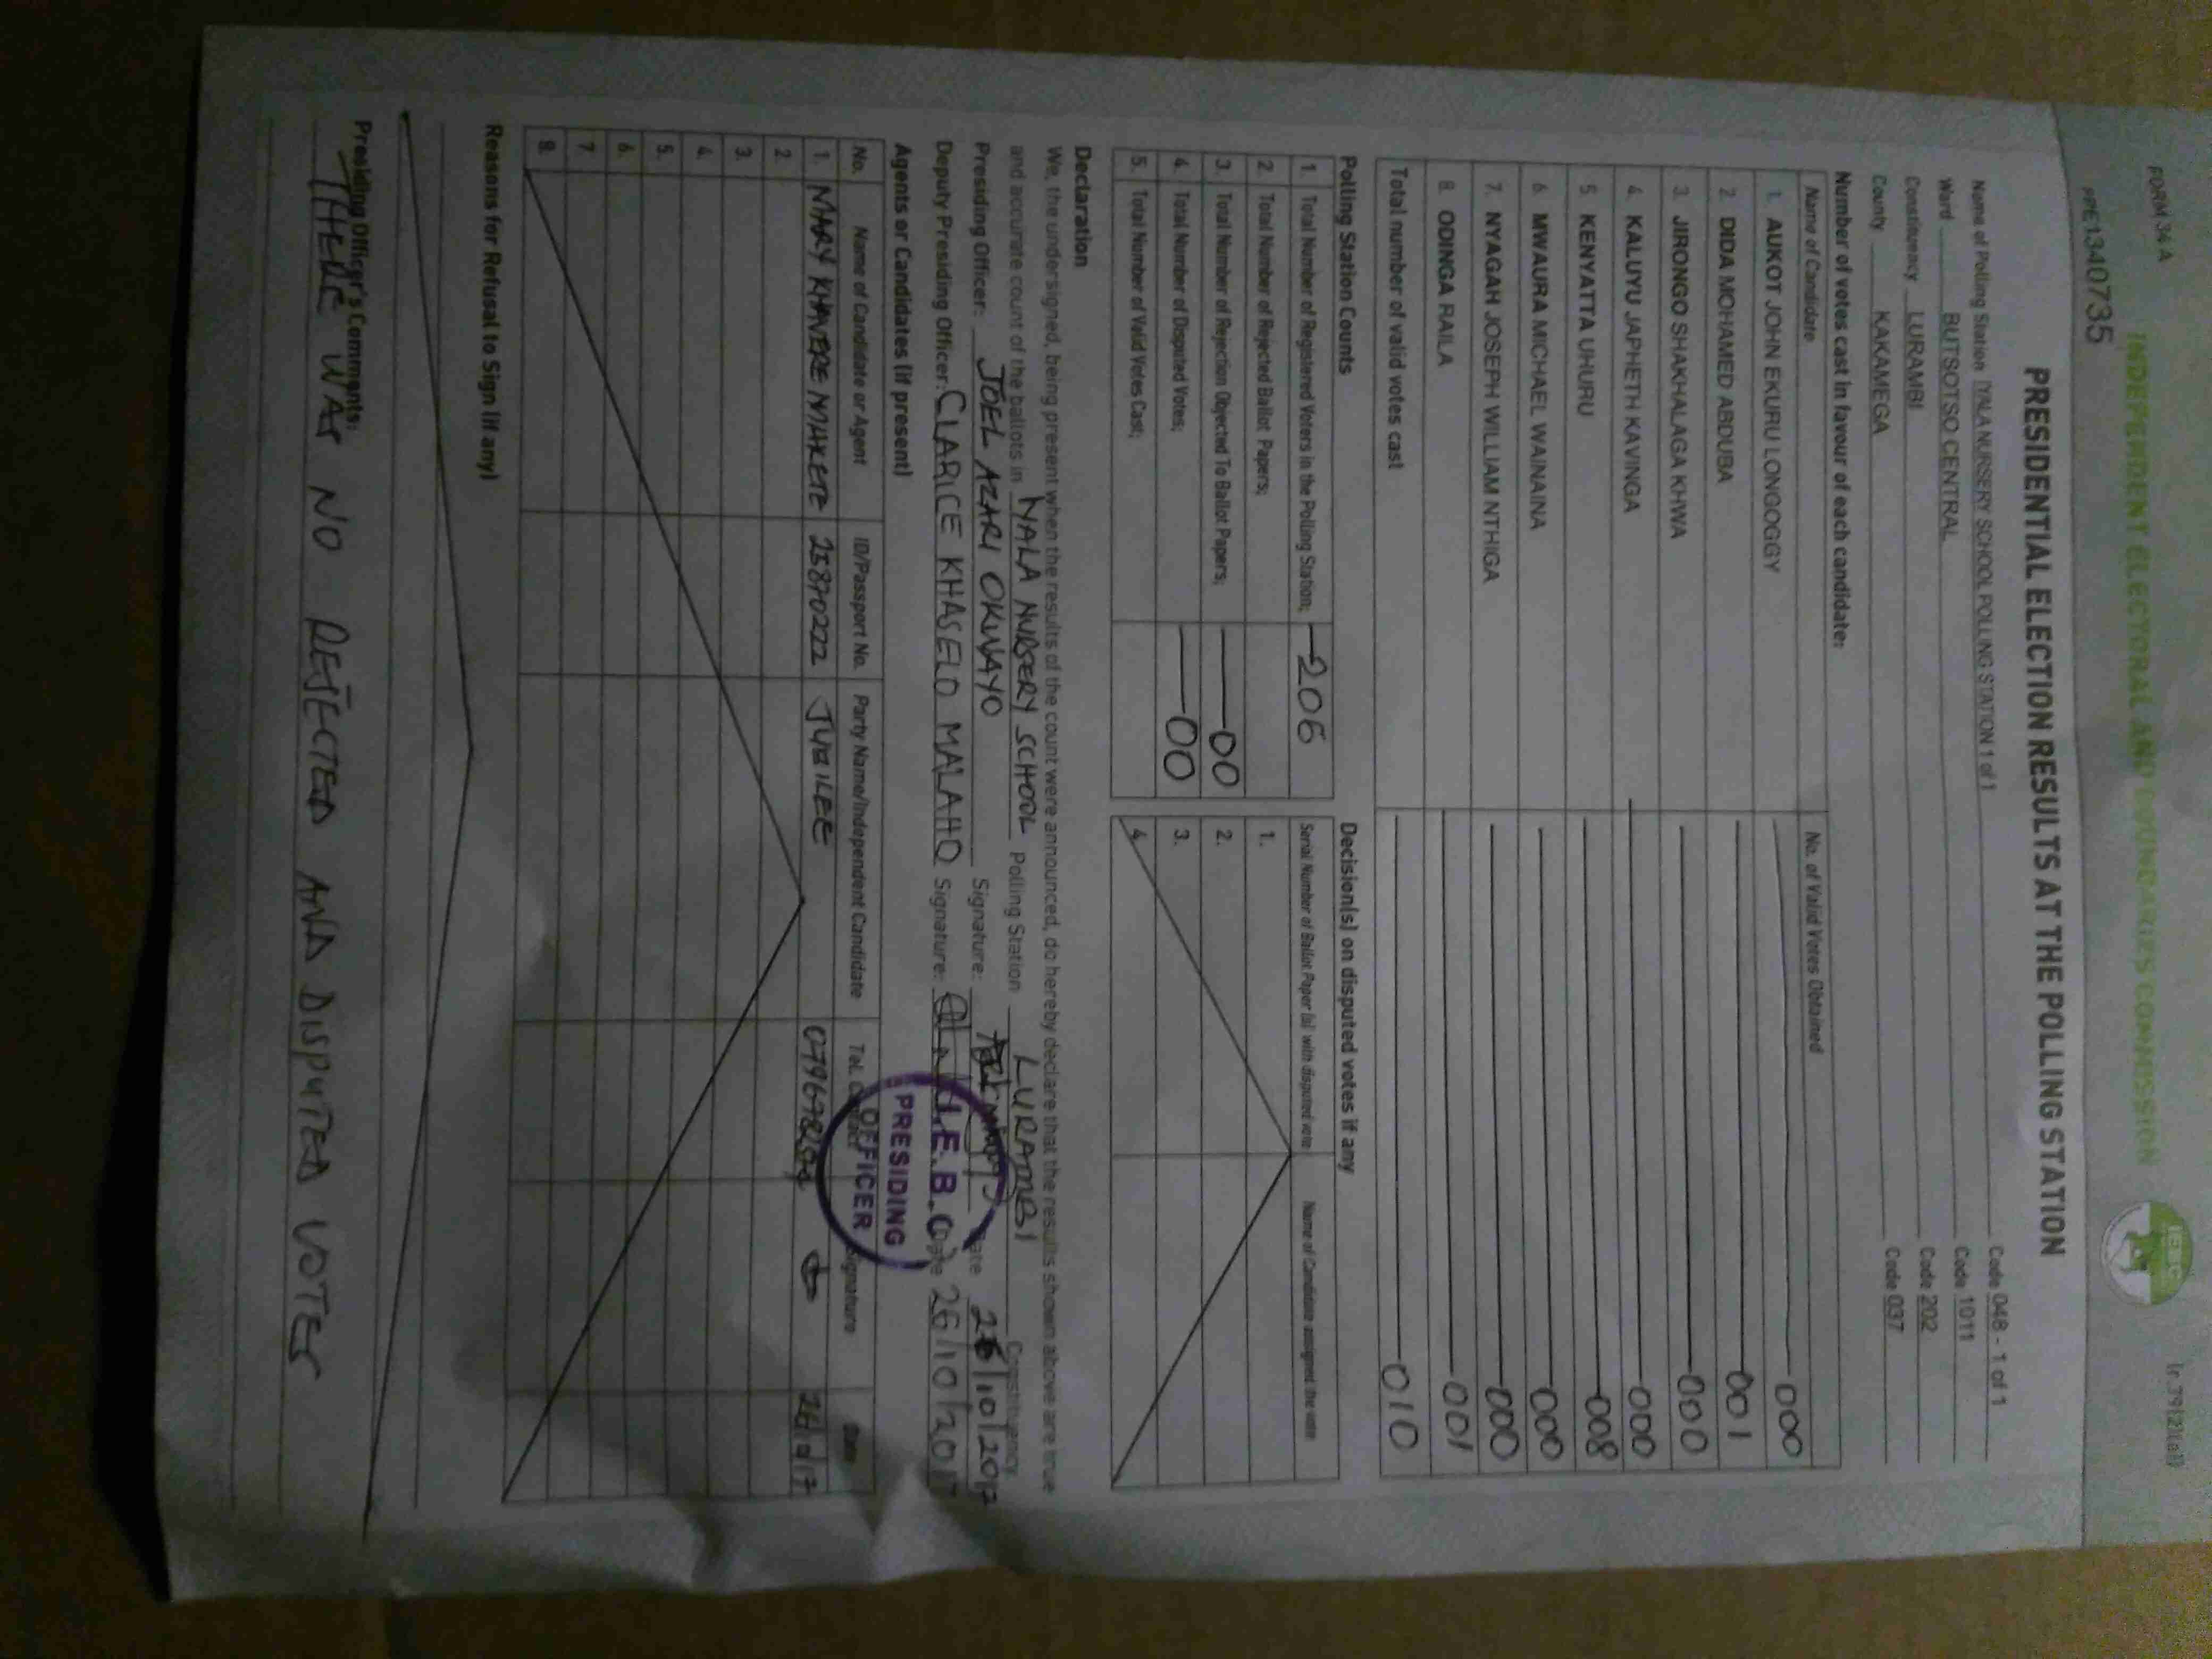 FORM 34 A
(r.79(2)(a))
INDEPENDENT ELECTORAL AND BOUNDARIES COMMISSION
IEBC
PPE1340735
PRESIDENTIAL ELECTION RESULTS AT THE POLLING STATION
Name of Polling Station IYALA NURSERY SCHOOL POLLING STATION 1 of 1 Code 048 - 1 of 1
Ward BUTSOTSO CENTRAL Code 1011
Constituency LURAMBI Code 202
County KAKAMEGA Code 037
Number of votes cast in favour of each candidate:
Name of Candidate No. of Valid Votes Obtained
1. AUKOT JOHN EKURU LONGOGGY 000
2. DIDA MOHAMED ABDUBA 001
3. JIRONGO SHAKHALAGA KHWA 000
4. KALUYU JAPHETH KAVINGA 000
5. KENYATTA UHURU 008
6. MWAURA MICHAEL WAINAINA 000
7. NYAGAH JOSEPH WILLIAM NTHIGA 000
8. ODINGA RAILA 001
Total number of valid votes cast 010
Polling Station Counts
1. Total Number of Registered Voters in the Polling Station; 206
2. Total Number of Rejected Ballot Papers;
3. Total Number of Rejection Objected To Ballot Papers; 00
4. Total Number of Disputed Votes; 00
5. Total Number of Valid Votes Cast;
Decision(s) on disputed votes if any
Serial Number of Ballot Paper (s) with disputed vote Name of Candidate assigned the vote
1.
2.
3.
4.
Declaration
We, the undersigned, being present when the results of the count were announced, do hereby declare that the results shown above are true
and accurate count of the ballots in IYALA NURSERY SCHOOL Polling Station LURAMBI Constituency
Presiding Officer: JOEL AZARI OKWAYO Signature: Date 26/10/2017
Deputy Presiding Officer: CLARICE KHASELO MALAHO Signature: Date 26/10/2017
I.E.B.C
PRESIDING
OFFICER
Agents or Candidates (if present)
No. Name of Candidate or Agent ID/Passport No. Party Name/Independent Candidate Tel. Contact Signature Date
1. MARY KHAVERE MAKETE 25870222 JUBILEE
2.
3.
4.
5.
6.
7.
8.
Reasons for Refusal to Sign (if any)
Presiding Officer's Comments:
THERE WAS NO REJECTED AND DISPUTED VOTES